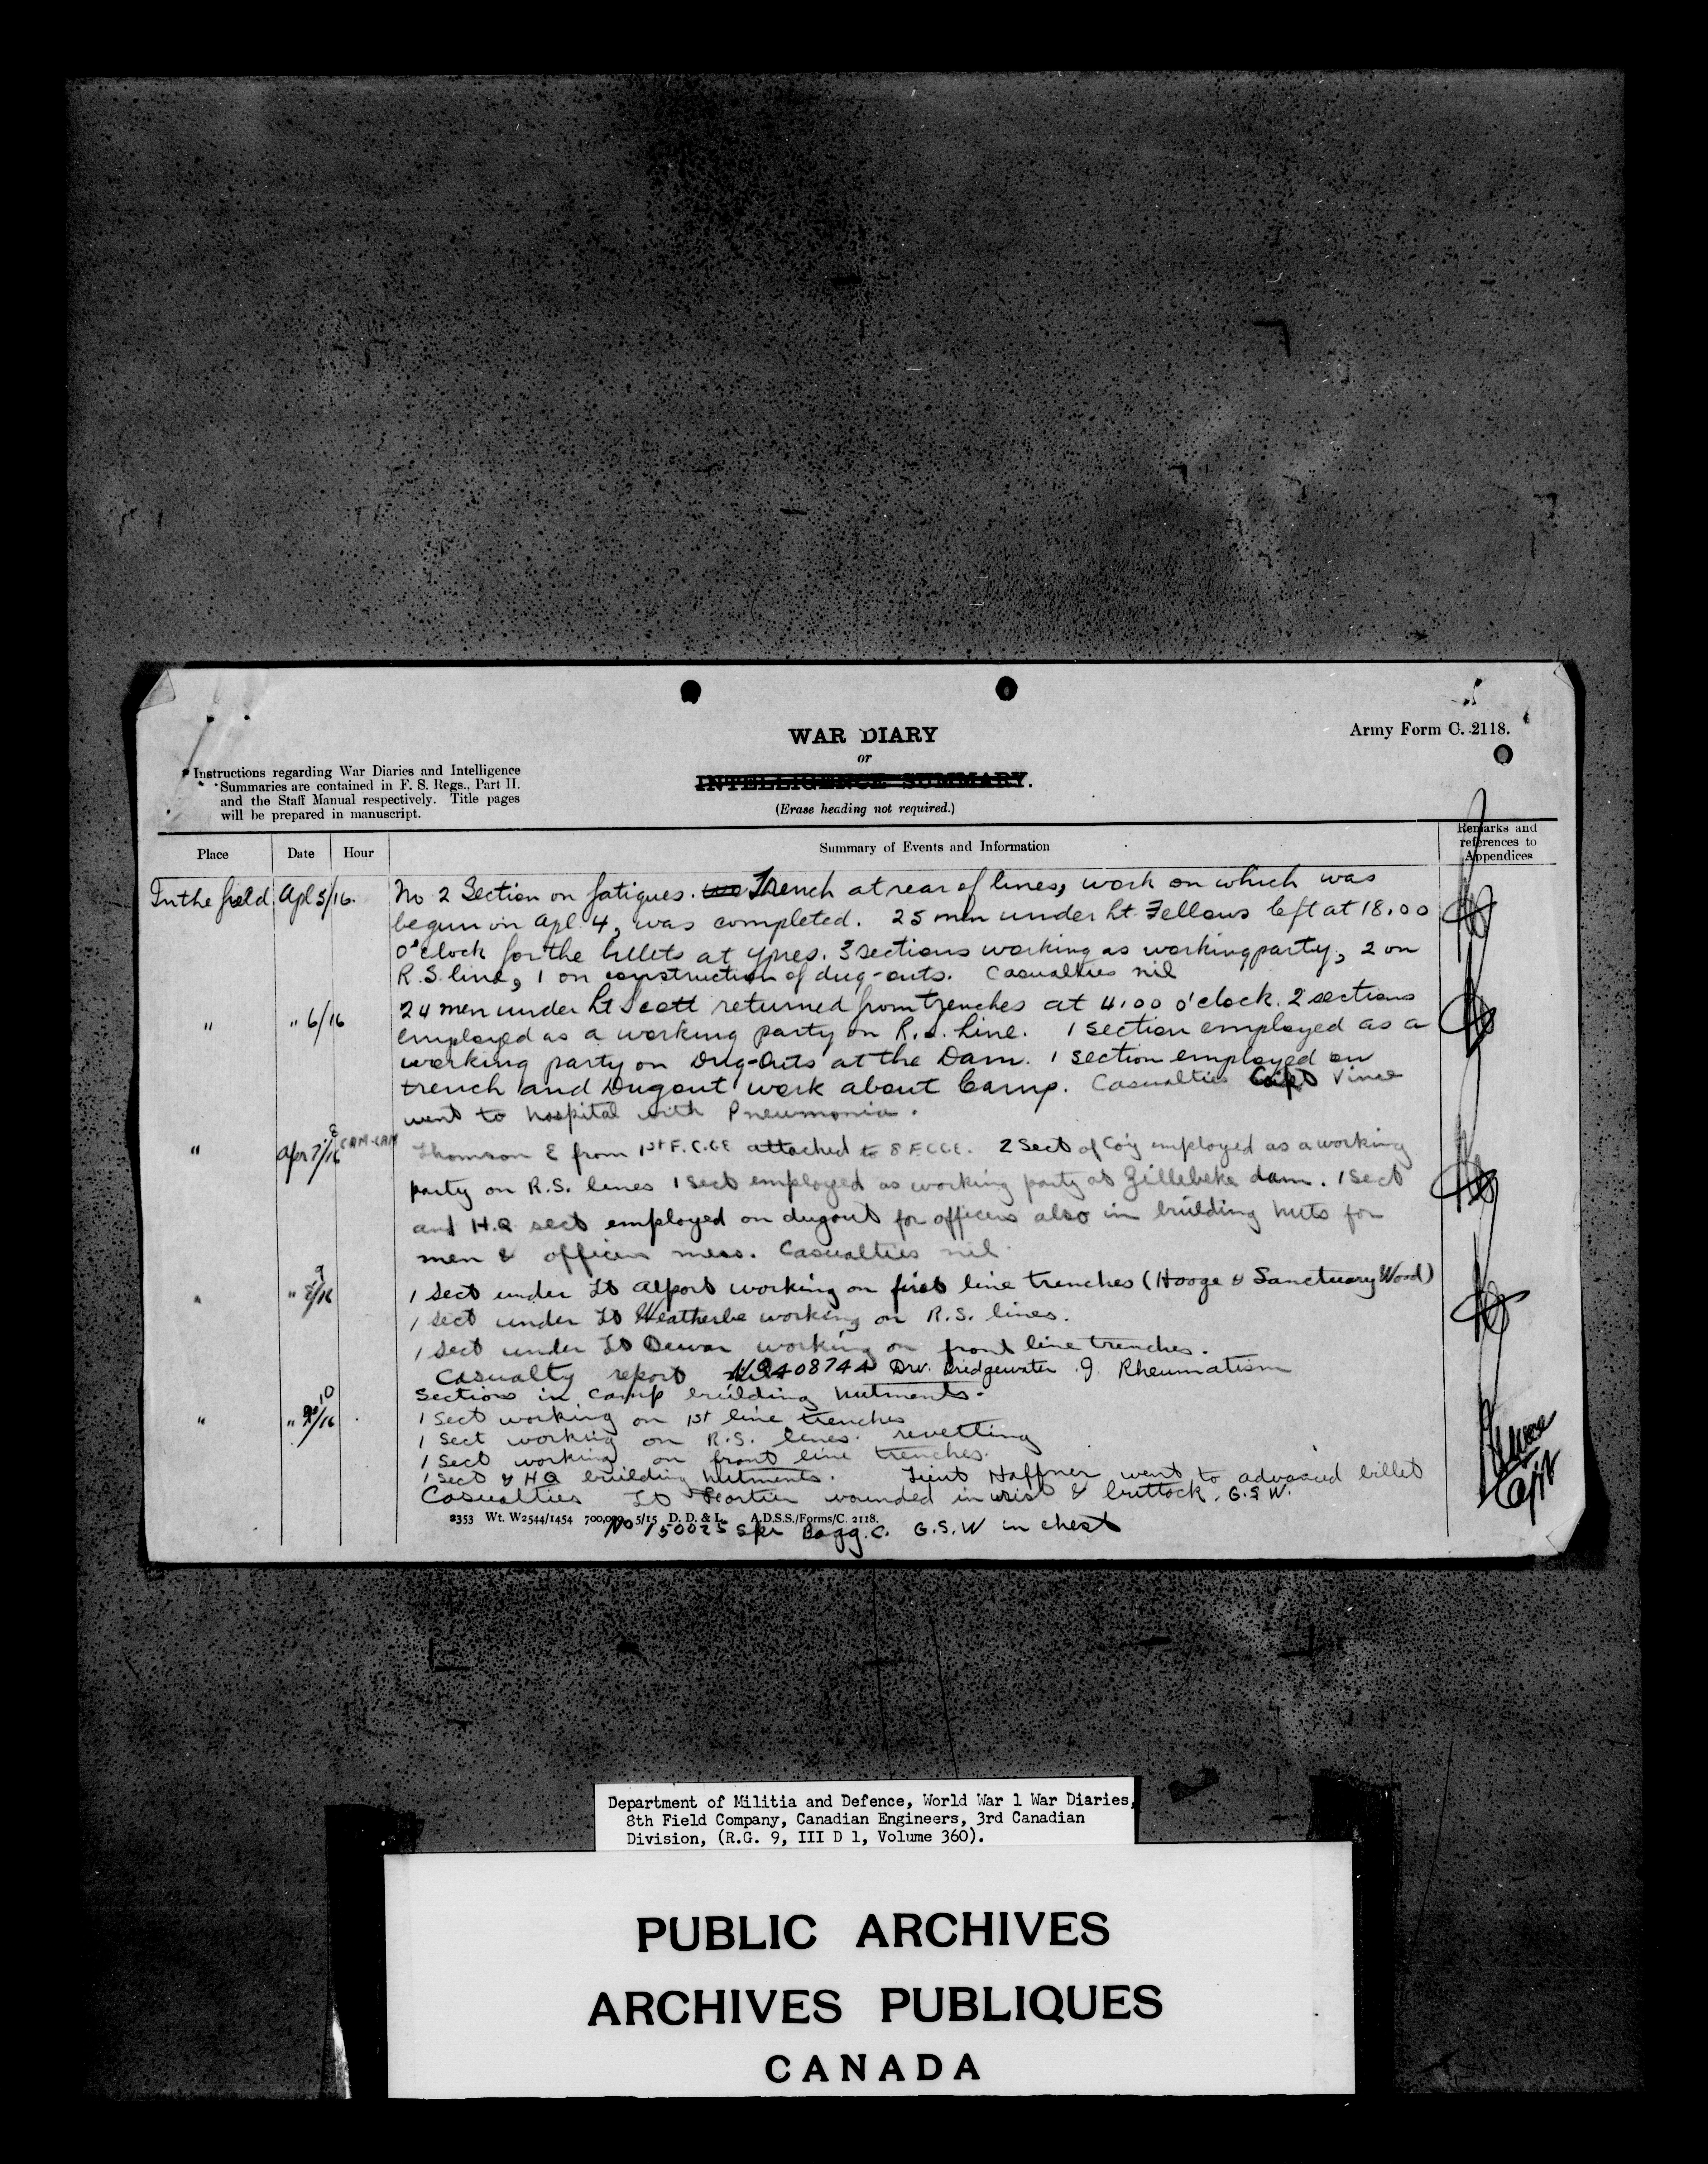 WAR DIARY
or
INTELLIGENCE SUMMARY.
(Erase heading not required.)
Army Form C. 2118.
Instructions regarding War Diaries and Intelligence
Summaries are contained in F. S. Regs., Part II.
and the Staff Manual respectively. Title pages
will be prepared in manuscript.
Place
Date
Hour
Summary of Events and Information
Remarks and
references to
Appendices
In the field Apl 5/16. No 2 Section on fatigues. Trench at rear of lines, work on which was
begun on Apl. 4, was completed. 25 men under Lt. Fellows left at 18.00
o'clock for the billets at Ypres. 3 sections working as working party, 2 on
R.S. line, 1 on construction of dug-outs. Casualties nil
" " 6/16 24 men under Lt Scott returned from trenches at 4.00 o'clock. 2 sections
employed as a working party on R.S. Line. 1 section employed as a
working party on Dug-Outs at the Dam. 1 section employed on
trench and Dugout work about Camp. Casualties Capt Vince
went to hospital with Pneumonia.
" Apr 7/16 8 Thomson E from 1st F.C.C.E attached to 8 F.C.C.E. 2 Sect of Coy employed as a working
party on R.S. lines 1 Sect employed as working party at Zillebeke dam. 1 Sect
and H.Q sect employed on dugout for officers also in building huts for
men & officers mess. Casualties nil.
" " 9/16 1 Sect under Lt Alport working on first line trenches (Hooge & Sanctuary Wood)
1 Sect under Lt Weatherbe working on R.S. lines.
1 Sect under Lt Dewar working on front line trenches.
Casualty report 408744 Drv. Bridgewater J. Rheumatism
Sections in Camp building hutments.
" " 10/16 1 Sect working on 1st line trenches
1 Sect working on R.S. lines. revetting
1 Sect working on front line trenches.
1 Sect & HQ building hutments. Lieut Haffner went to advanced billet
Casualties Lt wounded in wrist & buttock. G.S.W.
2353 Wt. W2544/1454 700,000 5/15 D. D. & L. A.D.S.S./Forms/C. 2118.
No 150025 Spr Bagg. C. G.S.W in chest
Capt
Department of Militia and Defence, World War 1 War Diaries,
8th Field Company, Canadian Engineers, 3rd Canadian
Division, (R.G. 9, III D 1, Volume 360).
PUBLIC ARCHIVES
ARCHIVES PUBLIQUES
CANADA